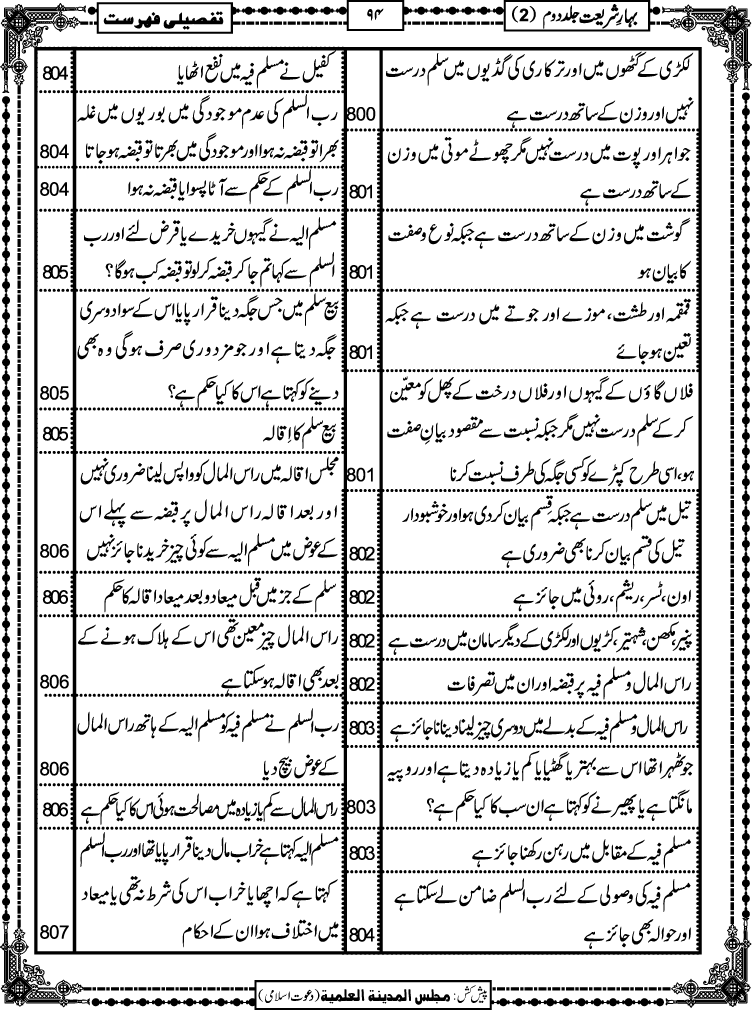 بہارِ شریعت جلد دوم (2)
۹۴
تفصیلی فہرست
لکڑی کے گٹھوں میں اور ترکاری کی گڈیوں میں سلم درست
نہیں اور وزن کے ساتھ درست ہے 800
جواہر اور پوت میں درست نہیں مگر چھوٹے موتی میں وزن
کے ساتھ درست ہے 801
گوشت میں وزن کے ساتھ درست ہے جبکہ نوع وصفت
کا بیان ہو 801
قمقمہ اور طشت، موزے اور جوتے میں درست ہے جبکہ
تعین ہو جائے 801
فلاں گاؤں کے گیہوں اور فلاں درخت کے پھل کو معیّن
کر کے سلم درست نہیں مگر جبکہ نسبت سے مقصود بیانِ صفت
ہو، اسی طرح کپڑے کو کسی جگہ کی طرف نسبت کرنا 801
تیل میں سلم درست ہے جبکہ قسم بیان کر دی ہو اور خوشبودار
تیل کی قسم بیان کرنا بھی ضروری ہے 802
اون، ٹسر، ریشم، روئی میں جائز ہے 802
پنیر، مکھن، شہتیر، کڑیوں اور لکڑی کے دیگر سامان میں درست ہے 802
راس المال و مسلم فیہ پر قبضہ اور ان میں تصرفات 802
راس المال و مسلم فیہ کے بدلے میں دوسری چیز لینا دینا ناجائز ہے 803
جو ٹھہرا تھا اس سے بہتر یا گھٹیا یا کم یا زیادہ دیتا ہے اور روپیہ
مانگتا ہے یا پھیرنے کو کہتا ہے ان سب کا کیا حکم ہے؟ 803
مسلم فیہ کے مقابل میں رہن رکھنا جائز ہے 803
مسلم فیہ کی وصولی کے لئے رب السلم ضامن لے سکتا ہے
اور حوالہ بھی جائز ہے 804
کفیل نے مسلم فیہ میں نفع اٹھایا 804
رب السلم کی عدم موجودگی میں بوریوں میں غلہ
بھرا تو قبضہ نہ ہوا اور موجودگی میں بھرتا تو قبضہ ہو جاتا 804
رب السلم کے حکم سے آٹا پسوایا قبضہ نہ ہوا 804
مسلم الیہ نے گیہوں خریدے یا قرض لئے اور رب
السلم سے کہا تم جا کر قبضہ کر لو تو قبضہ کب ہوگا؟ 805
بیع سلم میں جس جگہ دینا قرار پایا اس کے سوا دوسری
جگہ دیتا ہے اور جو مزدوری صرف ہوگی وہ بھی
دینے کو کہتا ہے اس کا کیا حکم ہے؟ 805
بیع سلم کا اِقالہ 805
مجلس اقالہ میں راس المال کو واپس لینا ضروری نہیں
اور بعد اقالہ راس المال پر قبضہ سے پہلے اس
کے عوض میں مسلم الیہ سے کوئی چیز خریدنا جائز نہیں 806
سلم کے جز میں قبل میعاد و بعد میعاد اقالہ کا حکم 806
راس المال چیز معین تھی اس کے ہلاک ہونے کے
بعد بھی اقالہ ہو سکتا ہے 806
رب السلم نے مسلم فیہ کو مسلم الیہ کے ہاتھ راس المال
کے عوض بیچ دیا 806
راس المال سے کم یا زیادہ میں مصالحت ہوئی اس کا کیا حکم ہے 806
مسلم الیہ کہتا ہے خراب مال دینا قرار پایا تھا اور رب السلم
کہتا ہے کہ اچھا یا خراب اس کی شرط نہ تھی یا میعاد
میں اختلاف ہوا ان کے احکام 807
پیش کش: مجلس المدینۃ العلمیۃ (دعوت اسلامی)